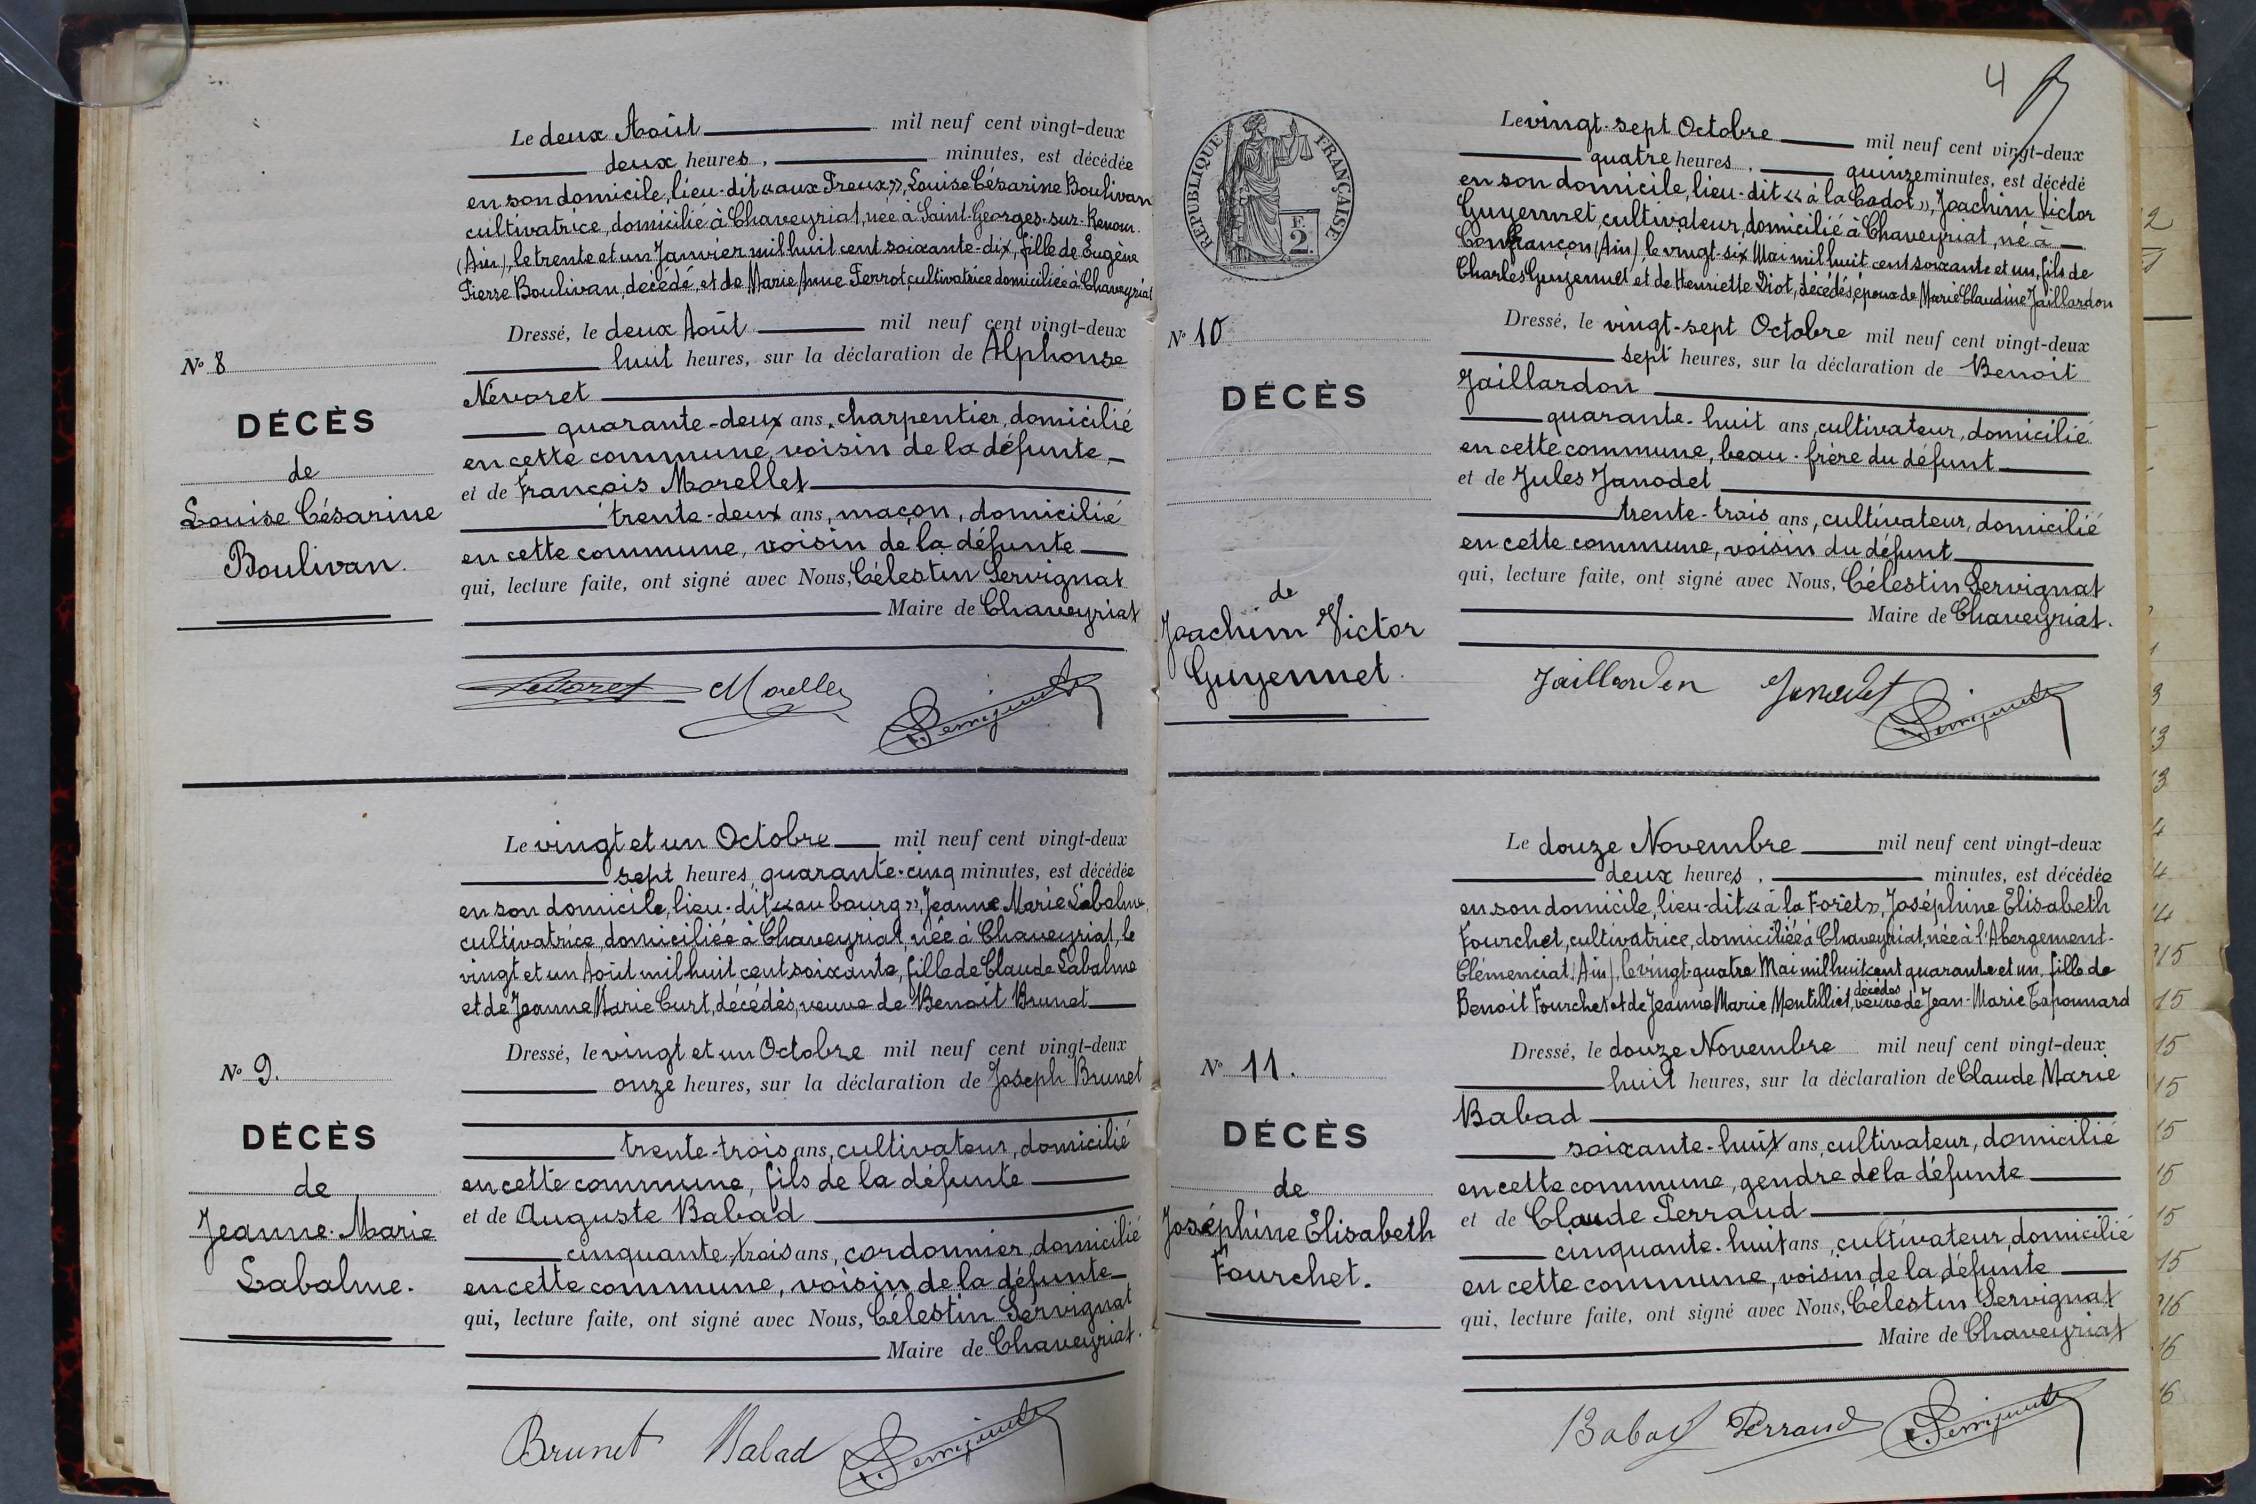 Le deux Août mil neuf cent vingt-deux
deux heures, minutes, est décédée
en son domicile, lieu-dit « aux Freux », Louise Césarine Boulivan
cultivatrice, domicilié à Chaveyriat, née à Saint-Georges-sur-Renom
(Ain), le trente et un Janvier mil huit cent soixante-dix, fille de Eugène
Pierre Boulivan, décédé, et de Marie Anne Ferrot, cultivatrice domiciliée à Chaveyriat
Dressé, le deux Août mil neuf cent vingt-deux
huit heures, sur la déclaration de Alphonse
Névoret
quarante-deux ans, charpentier, domicilié
en cette commune, voisin de la défunte
et de François Morellet
trente-deux ans, maçon, domicilié
en cette commune, voisin de la défunte
qui, lecture faite, ont signé avec Nous, Célestin Servignat
Maire de Chaveyriat
No 8
DÉCÈS
de
Louise Césarine
Boulivan.
Nevoret Morellet Servignat
Le vingt et un Octobre mil neuf cent vingt-deux
sept heures quarante-cinq minutes, est décédée
en son domicile, lieu-dit « au bourg », Jeanne Marie Labalme,
cultivatrice, domiciliée à Chaveyriat, née à Chaveyriat, le
vingt et un Août mil huit cent soixante, fille de Claude Labalme
et de Jeanne Marie Curt, décédés, veuve de Benoit Brunet
Dressé, le vingt et un Octobre mil neuf cent vingt-deux
onze heures, sur la déclaration de Joseph Brunet
trente-trois ans, cultivateur, domicilié
en cette commune, fils de la défunte
et de Auguste Babad
cinquante-trois ans, cordonnier, domicilié
en cette commune, voisin de la défunte
qui, lecture faite, ont signé avec Nous, Célestin Servignat
Maire de Chaveyriat.
No 9.
DÉCÈS
de
Jeanne-Marie
Labalme.
Brunet Babad Servignat
4
RÉPUBLIQUE FRANÇAISE
F.
2.
Le vingt-sept Octobre mil neuf cent vingt-deux
quatre heures, quinze minutes, est décédé
en son domicile, lieu-dit « à la Cadot », Joachim Victor
Guyennet, cultivateur, domicilié à Chaveyriat, né à
Confrançon (Ain) le vingt-six Mai mil huit cent soixante et un, fils de
Charles Guyennet et de Henriette Diot, décédés, époux de Marie Claudine Jaillardon
Dressé, le vingt-sept Octobre mil neuf cent vingt-deux
sept heures, sur la déclaration de Benoit
Jaillardon
quarante-huit ans, cultivateur, domicilié
en cette commune, beau-frère du défunt
et de Jules Janodet
trente-trois ans, cultivateur, domicilié
en cette commune, voisin du défunt
qui, lecture faite, ont signé avec Nous, Célestin Servignat
Maire de Chaveyriat.
No 10
DÉCÈS
de
Joachim Victor
Guyennet.
Jaillardon Janodet Servignat
Le douze Novembre mil neuf cent vingt-deux
deux heures, minutes, est décédée
en son domicile, lieu-dit « à la Forêt », Joséphine Elisabeth
Fourchet, cultivatrice, domiciliée à Chaveyriat, née à l'Abergement-
Clémenciat (Ain), le vingt-quatre Mai mil huit cent quarante et un, fille de
décédés
Benoit Fourchet et de Jeanne Marie Montilliet, veuve de Jean-Marie Taponnard
Dressé, le douze Novembre mil neuf cent vingt-deux
huit heures, sur la déclaration de Claude Marie
Babad
soixante-huit ans, cultivateur, domicilié
en cette commune, gendre de la défunte
et de Claude Perraud
cinquante-huit ans, cultivateur, domicilié
en cette commune, voisin de la défunte
qui, lecture faite, ont signé avec Nous, Célestin Servignat
Maire de Chaveyriat
No 11.
DÉCÈS
de
Joséphine Elisabeth
Fourchet.
Babad Perraud Servignat